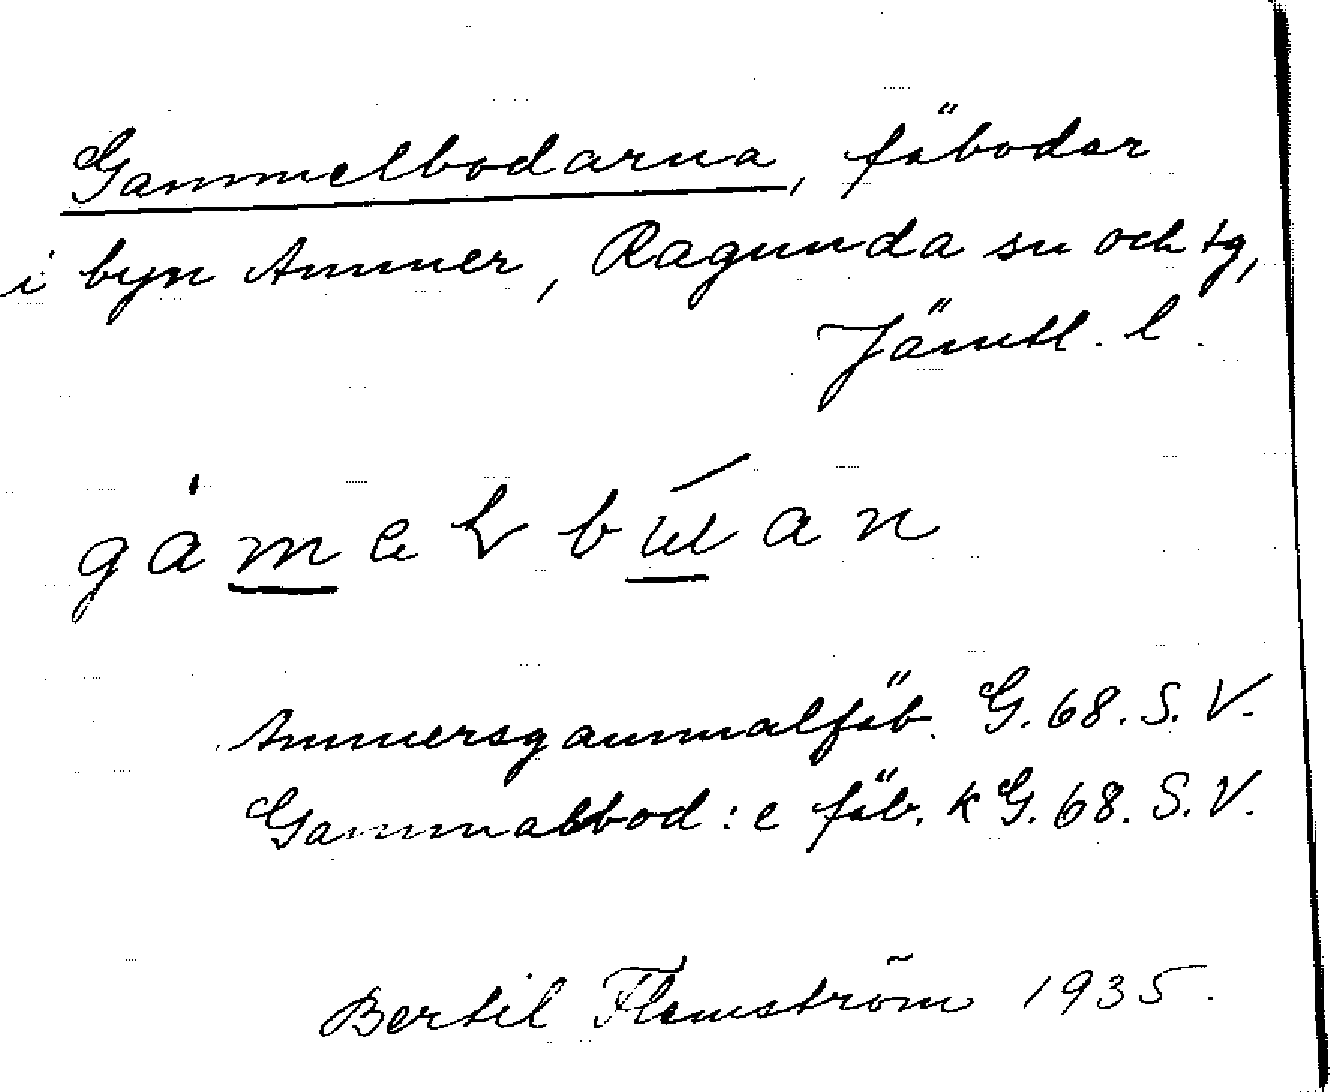 Gammelbodarna, fäbodar
i byn Ammer, Ragunda sn och tg,
Jämtl. l.
Ammersgammalfäb. G. 68. S. V.
Gammalbod: e fäb. k G. 68. S. V.
Bertil Flemström 1935.